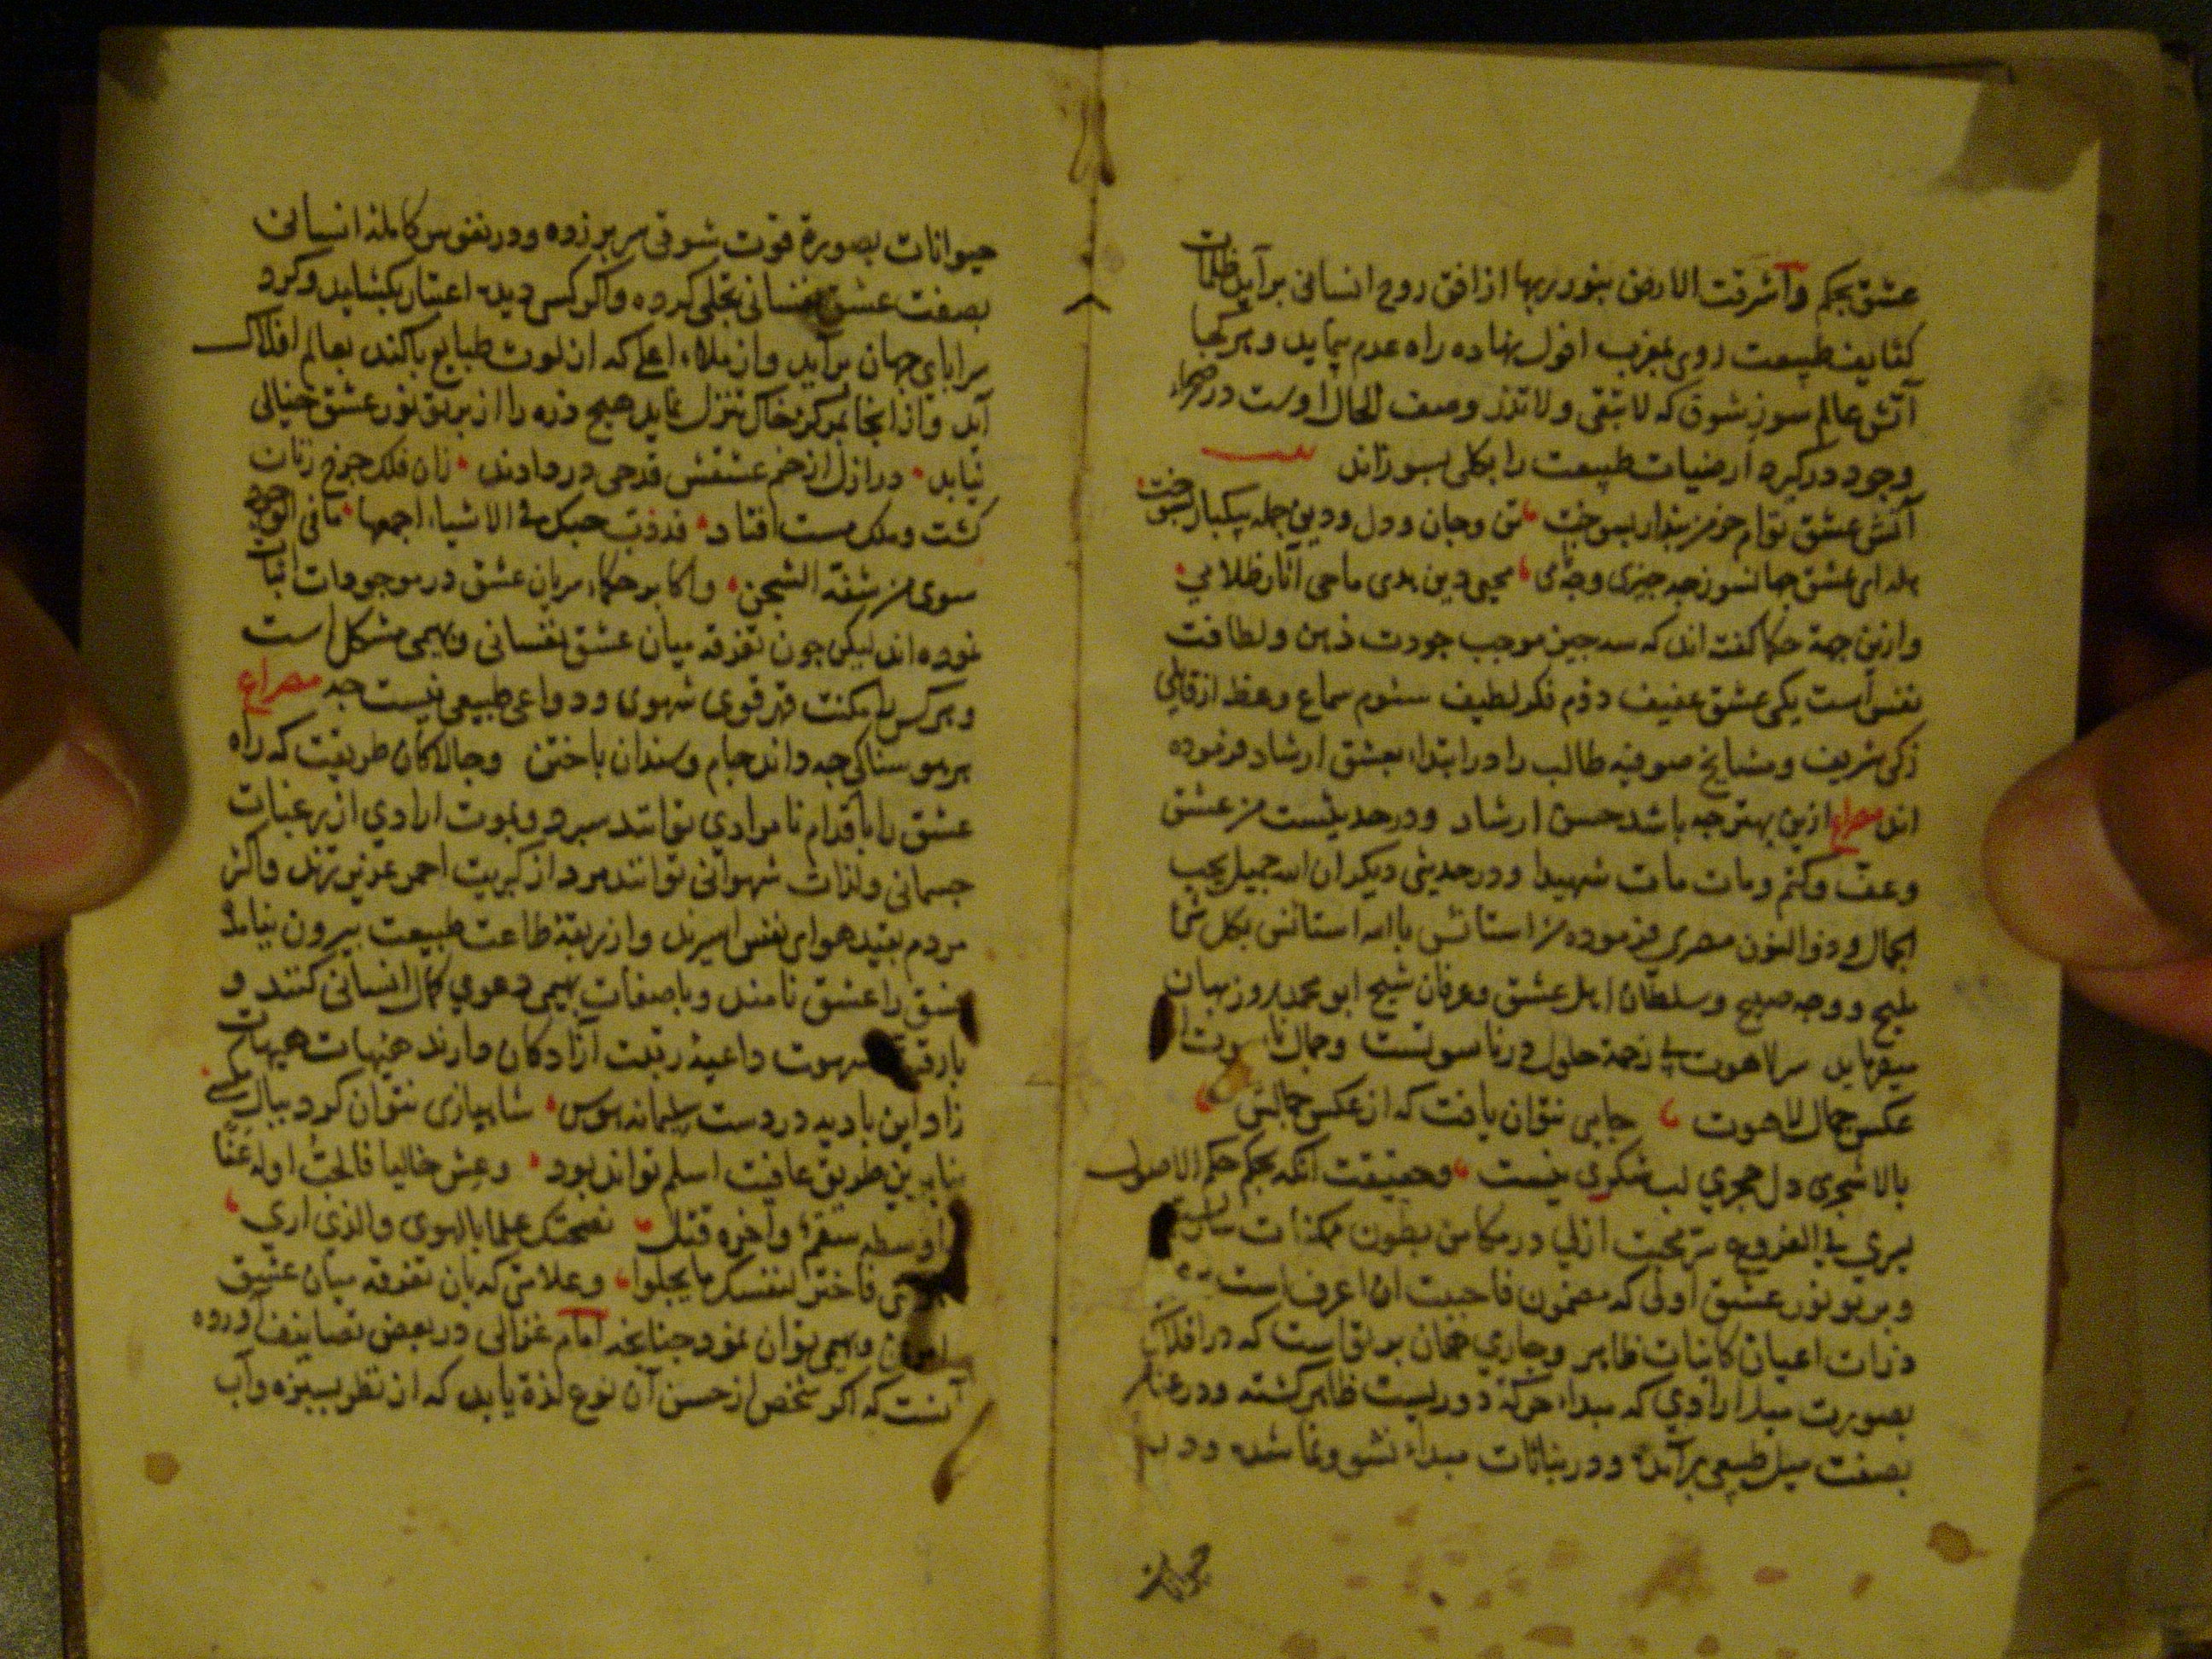 عشق بحكم وأشرقت الارض بنور ربها از افق روح انسانی برآید ظلمات
كثایف طبیعت روی بمغرب افول نهاده راه عدم پیماید و هر كجا
آتش عالم سوز شوق كه لا تبقی ولا تذر وصف الحال اوست در صحراء
وجود درگیرد ارضیات طبیعت را بكلی بسوزاند بیت
آتش عشق توام خرمن پندار بسوخت تن وجان ودل ودین جمله بیكبار بسوخت
هله ای عشق جهانسوز چه چیزی وچه ٔ محیی دین هدی ماحی آثار ظلامی
وازین جهة حكما گفته اند كه سه چیز موجب جودت ذهن ولطافت
نفس است یكی عشق عفیف دوم فكر لطیف سئوم سماع وعظ از قایلی
زكی شریف ومشایخ صوفیه طالب را در ابتداء بعشق ارشاد فرموده
اند مصراع ازین بهتر چه باشد حسن ارشاد ودر حدیثست من عشق
وعف وكتم ومات مات شهیدا ودر حدیثی دیگر ان الله جمیل یحب
الجمال وذوالنون مصری فرموده من استأنس بالله استأنس بكل شئ
ملیح ووجه صبیح وسلطان اهل عشق وعرفان شیخ ابو محمد روزبهان
میفرماید سر لاهوت بی زحمة حلول در ناسوتست وجمال ناسوت از
عكس جمال لاهوت جایی نتوان یافت كه از عكس جمالش
بالا شجری دل حجری لب شكری نیست وحقیقت آنكه بحكم حكم الاصول
یسری فی الفروع سر محبت ازلی در مكامن بطون ممكنات ساریست
وپرتو نور عشق اولی كه مضمون فاحببت ان اعرف است
ذرات اعیان كاینات ظاهر وجاری همان برقاست كه در افلاك
بصورت میل ارادی كه مبداء حركة دوریست ظاهر گشته ودر عناصر
بصفت میل طبیعی برآمده ودر نباتات مبداء نشو ونما شده ودر
حیوانات بصورة قوت شوقی سر برزده ودر نفوس كامله انسانی
بصفت عشق نفسانی تجلی كرده واگر كسی دیده اعتبار بگشاید وگرد
سرابای جهان برآید واز ملاء اعلی كه از لوث طبایع پاكند بعالم افلاك
آید واز آنجا بمركز خاك تنزل نماید هیچ ذره را از بریق نور عشق خیالی
نیابد در ازل از خم عشقش قدحی در دادند زان فلك چرخ زنان
گشت وملك مست افتاد قد ذب حبك فی الاشیاء اجمعها مافی الوجود
سوی من شفه الشجن واكابر حكماء سریان عشق در موجودات اثبات
نموده اند لیكن چون تفرقه میان عشق نفسانی وبهیمی مشكل است
وهر كس را مكنت قهر قوی شهوی ودواعی طبیعی نیست چه مصراع
هر هوسناكی چه داند جام وسندان باختن وچالاكان طریقت كه راه
عشق را باقدام نامرادی توانند سپرد وبموت ارادی از رغبات
جسمانی ولذات شهوانی توانند مرد از كبریت احمر عزیز ترند واكثر
مردم بقید هوای نفس اسیرند واز ربقهٔ طاعت طبیعت بیرون نیامده
فسق را عشق نامند وباصفات بهیمی دعوی كمال انسانی كنند و
بارقیت شهوت داعیهٔ رتبت آزادگان دارند هیهات هیهات
زاد این بادیه در دست سلیمانه هوس شاهبازی نتوان كرد ببال مگسی
بنابرین طریق عافیت اسلم تواند بود وعش خالیا فالحب اوله عنا
واوسطه سقم وآخره قتل نصحتك علما بالهوی والذی اری
فاختر لنفسك ما یحلوا وعلامتی كه بان تفرقه میان عشق
وبهیمی توان نمود چنانچه امام غزالی در بعضی تصانیف آورده
آنست كه اگر شخص از حسن آن نوع لذة یابد كه از نظر بسبزه وآب